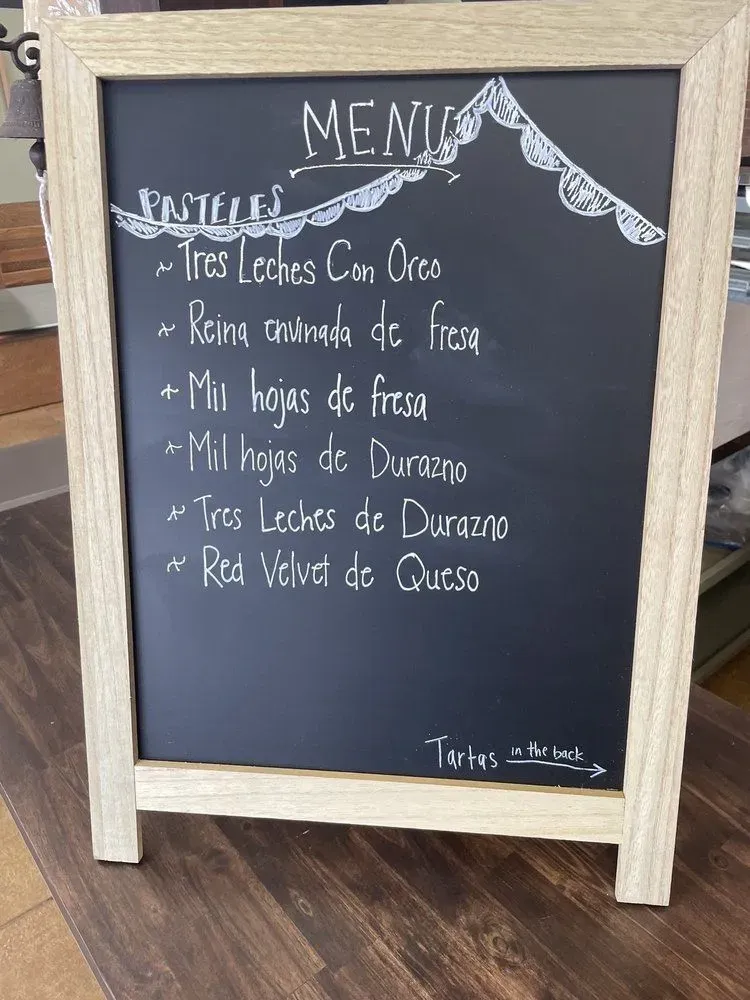 MENU
PASTELES
~ Tres Leches Con Oreo
~ Reina envinada de fresa
~ Mil hojas de fresa
~ Mil hojas de Durazno
~ Tres Leches de Durazno
~ Red Velvet de Queso
Tartas in the back →